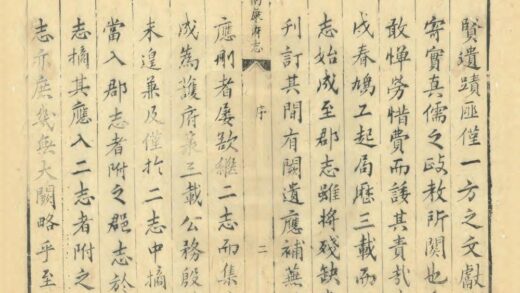 賢遺蹟匪僅一方之文獻
寄實真儒之政教所関也
敢憚勞惜費而諉其責哉
戌春鳩工起局歷三載而
志始成至郡志雖将殘缺
刊訂其間有闕遺應補蕪
康府志
序
二
應刪者屡欲繼二志而集
成焉護府篆三載公務殷
未遑兼及僅扵二志中摘
當入郡志者附之郡志於
志摘其應入二志者附之
志亦庶幾無大闕略乎至